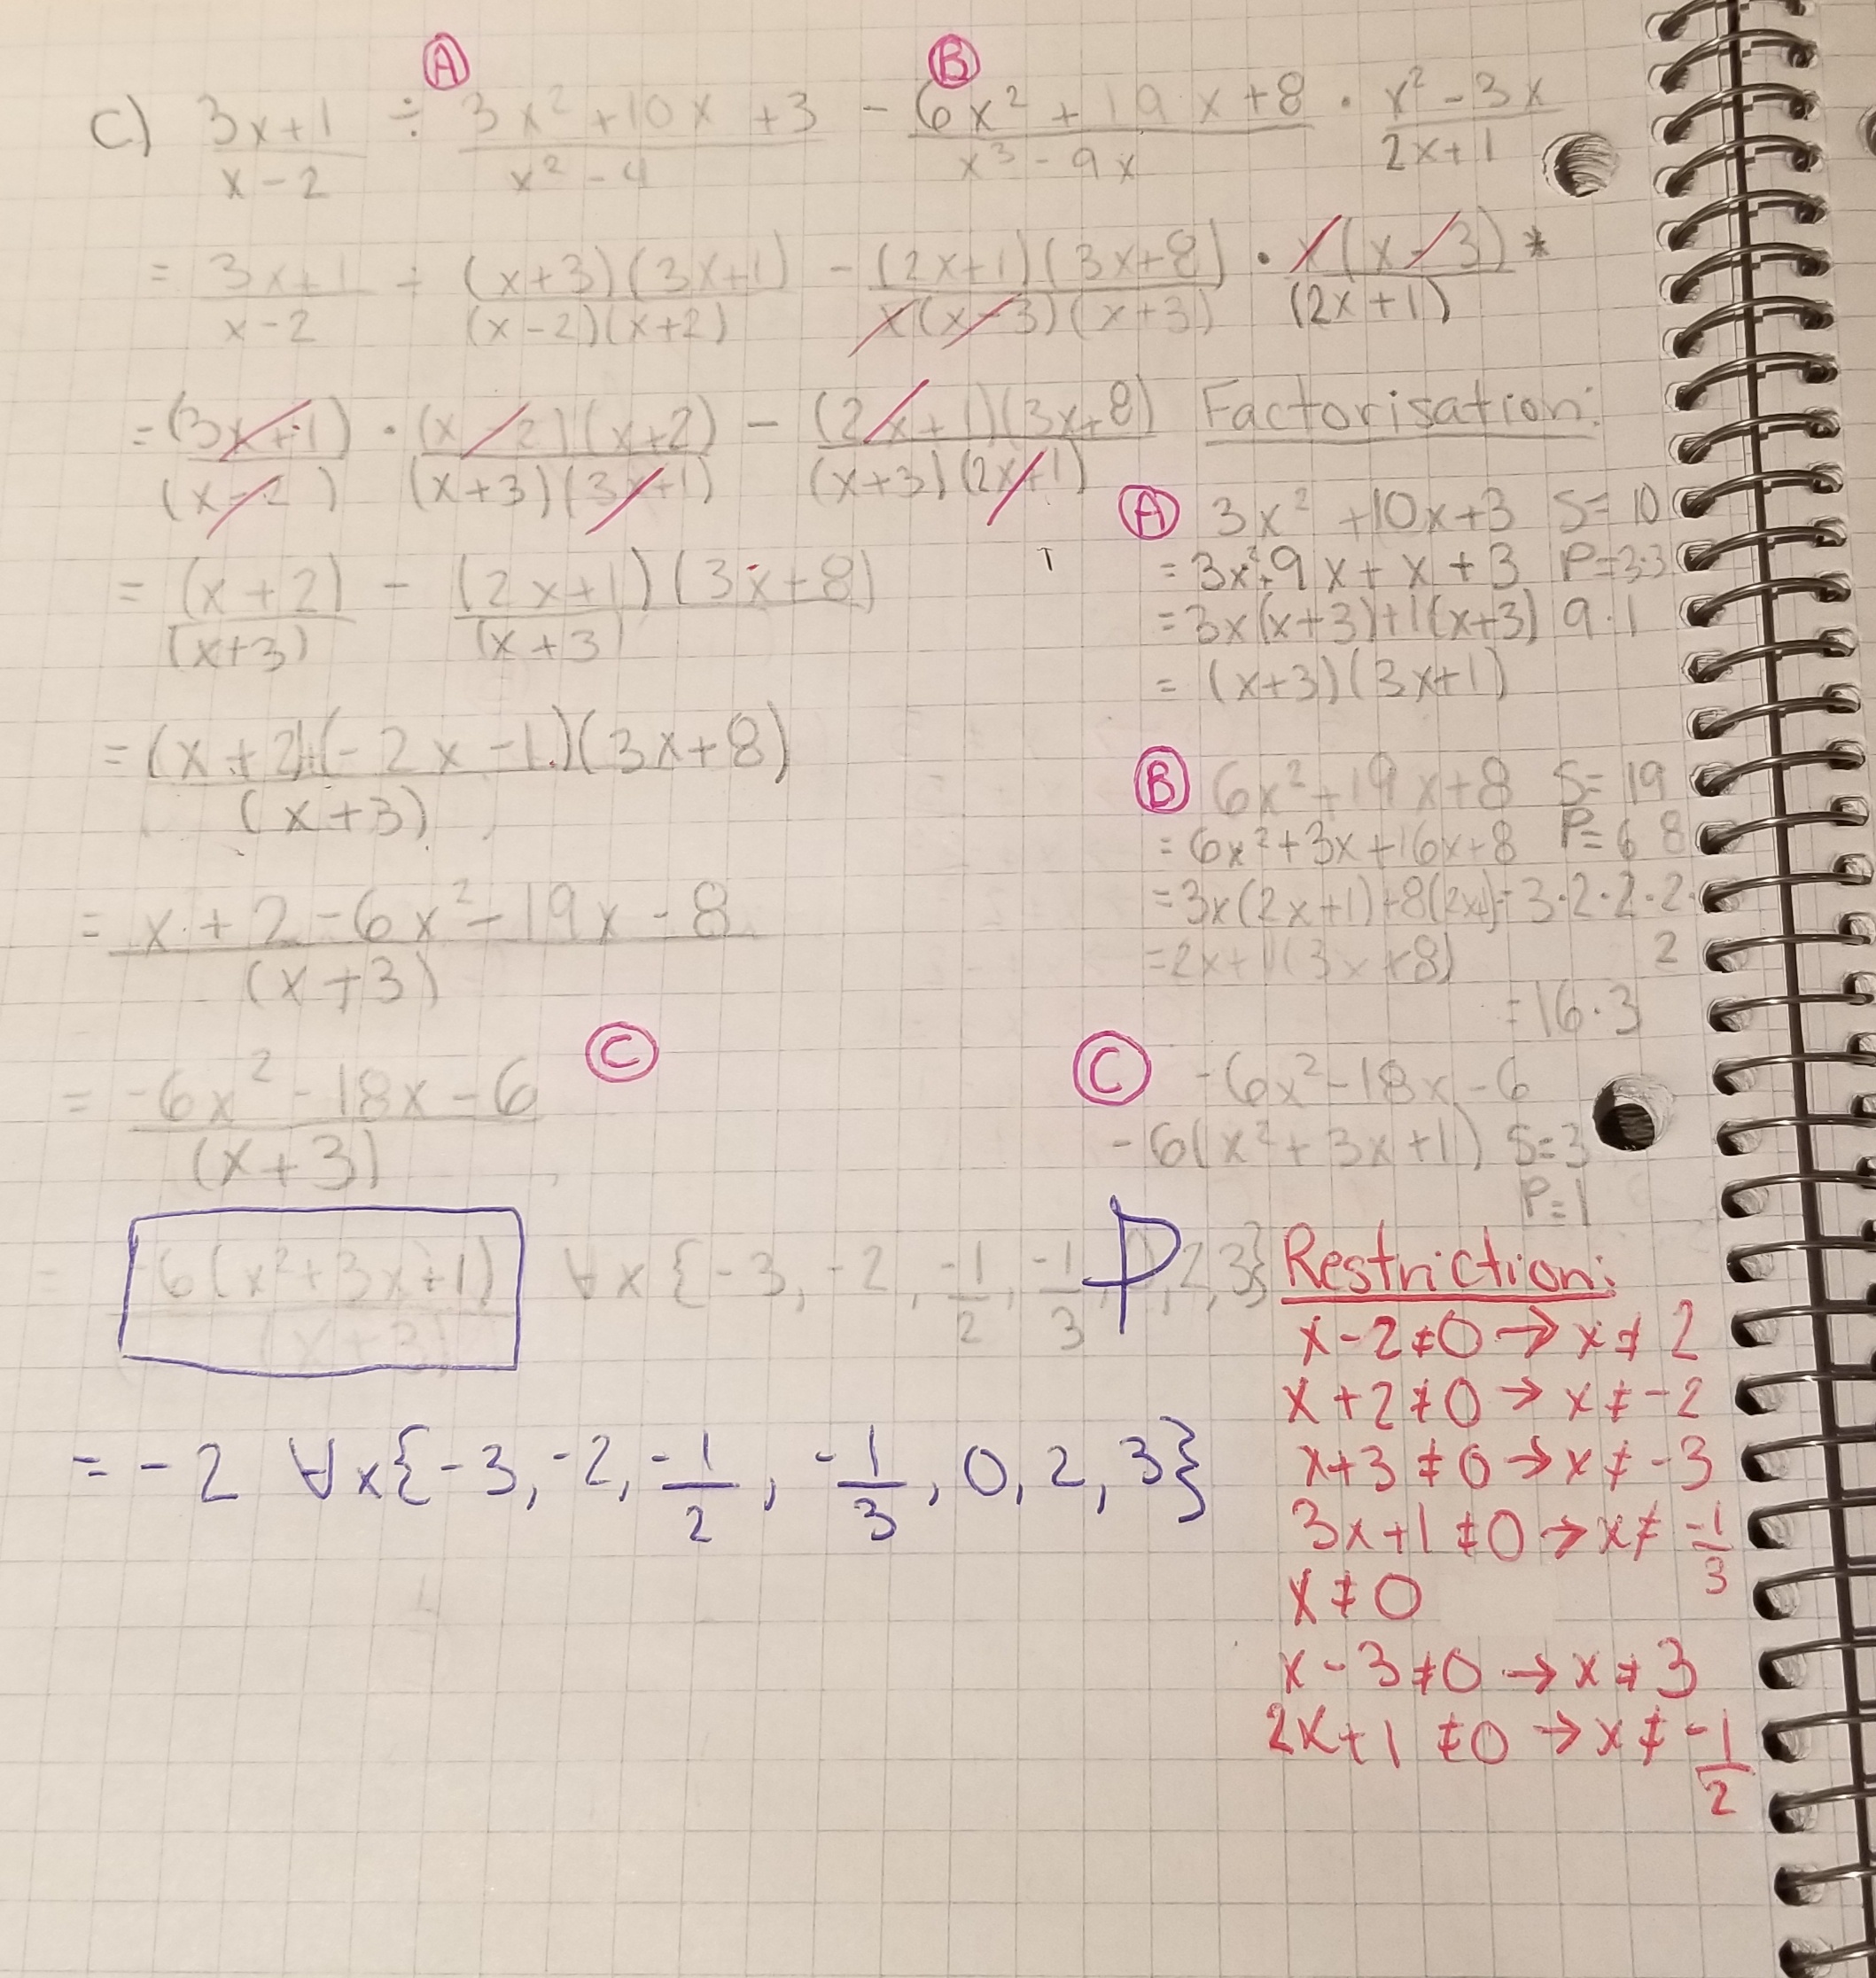 Ⓐ Ⓑ
c) (3x+1)/(x-2) ÷ (3x²+10x+3)/(x²-4) - (6x²+19x+8)/(x³-9x) · (x²-3x)/(2x+1)
= (3x+1)/(x-2) ÷ (x+3)(3x+1)/(x-2)(x+2) - (2x+1)(3x+8)/x(x-3)(x+3) · x(x-3)/(2x+1) *
= (3x+1)/(x-2) · (x-2)(x+2)/(x+3)(3x+1) - (2x+1)(3x+8)/(x+3)(2x+1)
= (x+2)/(x+3) - (2x+1)(3x+8)/(x+3)
= (x+2)+(-2x-1)(3x+8)/(x+3)
= x+2-6x²-19x-8/(x+3)
= -6x²-18x-6/(x+3) Ⓒ
= -6(x²+3x+1)/(x+3) ∀x{-3, -2, -1/2, -1/3, 0, 2, 3}
= -2 ∀x{-3, -2, -1/2, -1/3, 0, 2, 3}
Factorisation:
Ⓐ 3x²+10x+3 S=10
= 3x²+9x+x+3 P=3·3
= 3x(x+3)+1(x+3) 9·1
= (x+3)(3x+1)
Ⓑ 6x²+19x+8 S=19
= 6x²+3x+16x+8 P=6 8
= 3x(2x+1)+8(2x+1) = 3·2·2·2·
= 2x+1(3x+8) 2
= 16·3
Ⓒ -6x²-18x-6
-6(x²+3x+1) S=3
P=1
Restriction:
x-2≠0 → x≠2
x+2≠0 → x≠-2
x+3≠0 → x≠-3
3x+1≠0 → x≠-1/3
x≠0
x-3≠0 → x≠3
2x+1≠0 → x≠-1/2